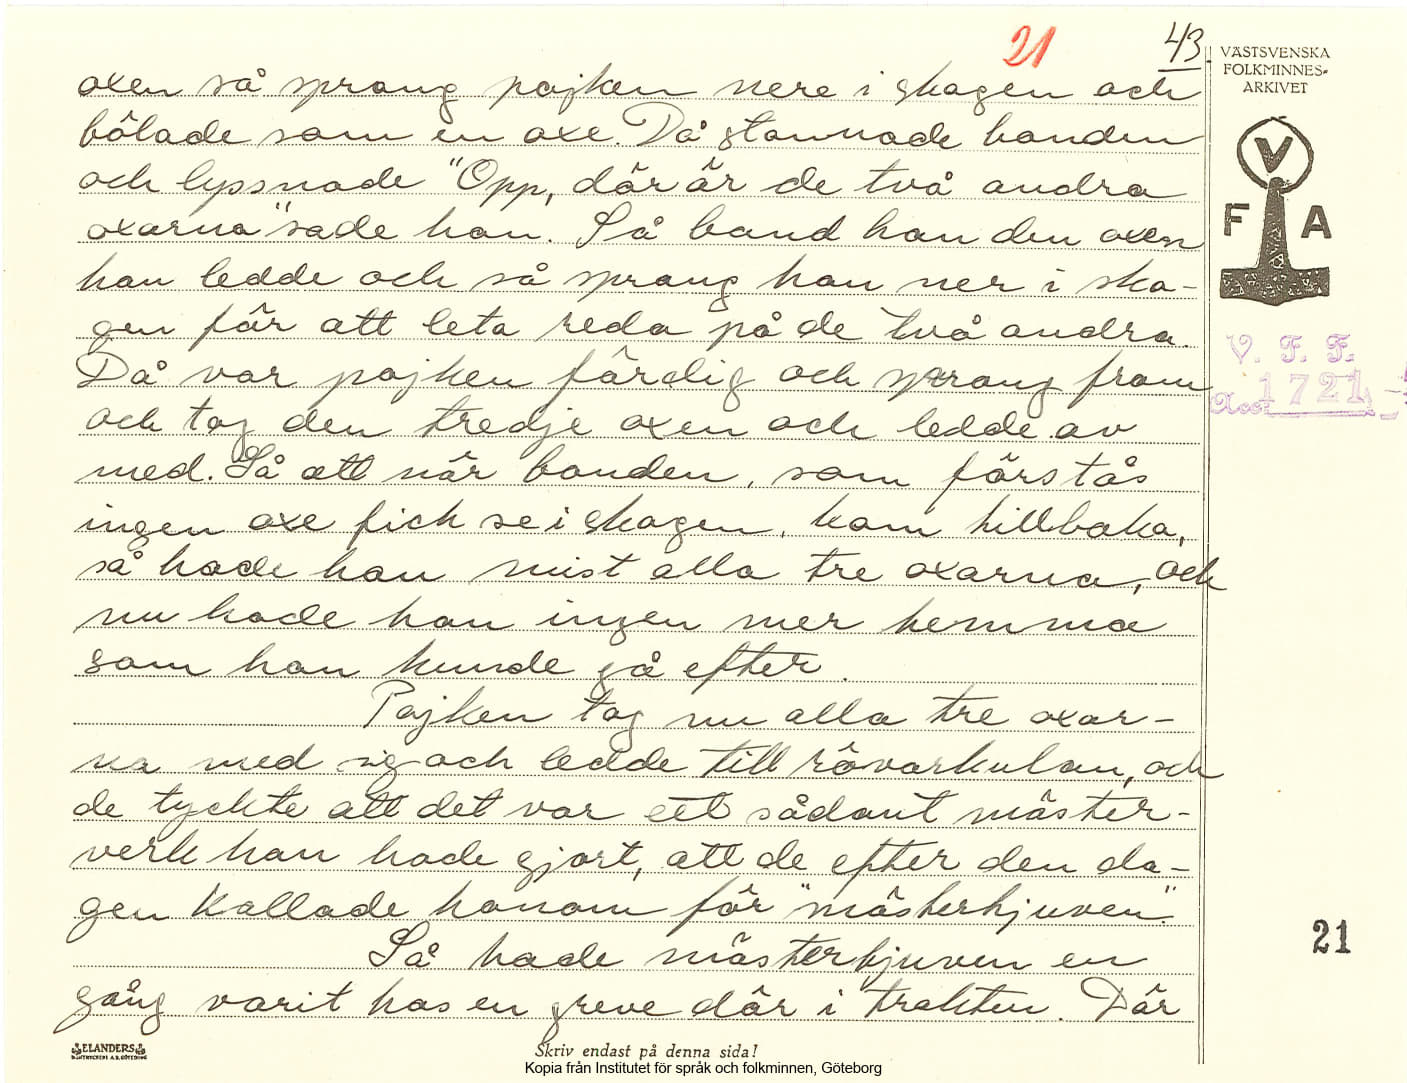 21
43.
VÄSTSVENSKA
FOLKMINNES-
ARKIVET
oxen så sprang pojken nere i skogen och
bölade som en oxe. Då stannade bonden
och lyssnade "Opp, där är de två andra
oxarna" sade han. Så band han den oxen
han ledde och så sprang han ner i sko-
gen för att leta reda på de två andra.
Då var pojken färdig och sprang fram
och tog den tredje oxen och ledde av
med. Så att när bonden, som förstås
ingen oxe fick se i skogen, kom tillbaka,
så hade han mist alla tre oxarna, och
nu hade han ingen mer hemma
som han kunde gå efter.
Pojken tog nu alla tre oxar-
na med sig och ledde till rövarkulan, och
de tyckte att det var ett sådant mäster-
verk han hade gjort, att de efter den da-
gen kallade honom för "mästertjuven".
Så hade mästertjuven en
gång varit hos en greve där i trakten. Där
V
F A
V. F. F.
Acc: 1721
21
ELANDERS
BOKTRYCKERI A.B. GÖTEBORG
Skriv endast på denna sida!
Kopia från Institutet för språk och folkminnen, Göteborg